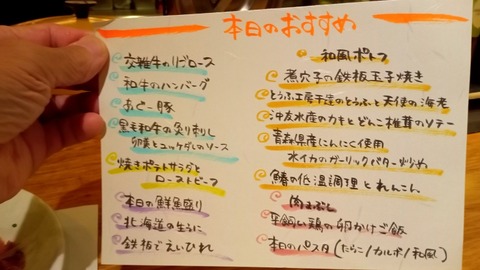 本日のおすすめ
交雑牛のリブロース
和牛のハンバーグ
あぐー豚
黒毛和牛の炙り刺し
卵黄とユッケダレのソース
焼きポテトサラダと
ローストビーフ
本日の鮮魚盛り
北海道の生うに
鉄板でえいひれ
和風ポトフ
煮穴子の鉄板玉子焼き
とうふ工房手造のとうふと天使の海老
沖友水産のカキとどんこ椎茸のソテー
青森県産にんにく使用
水イカのガーリックバター炒め
鰆の低温調理とれんこん
肉まぶし
平飼い鶏の卵かけご飯
本日のパスタ(たらこ/カルボ/和風)